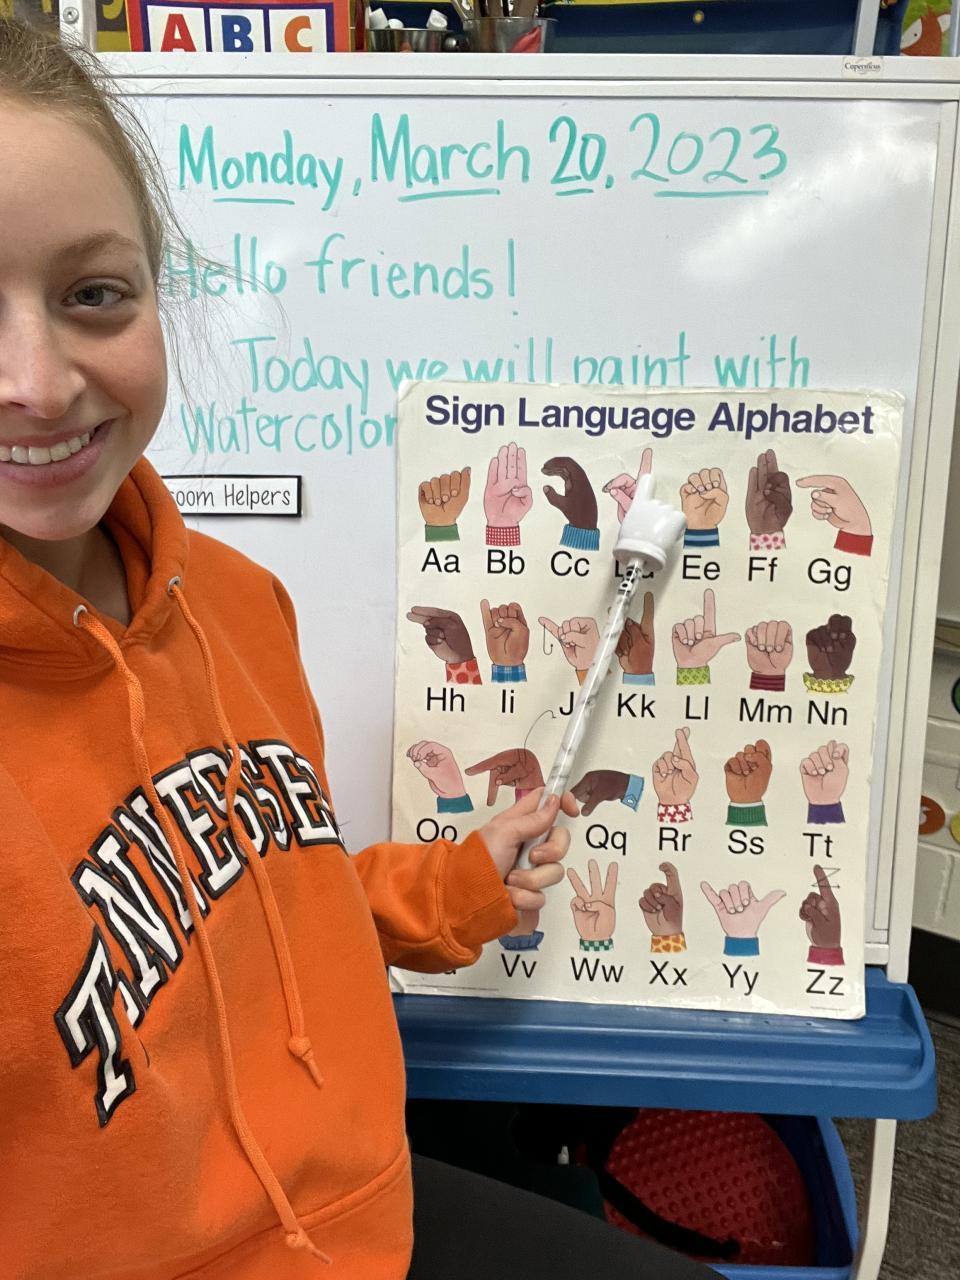 A B C
Copernicus
Monday, March 20, 2023
Hello friends!
Today we will paint with
Watercolor
Room Helpers
Sign Language Alphabet
Aa Bb Cc Dd Ee Ff Gg
Hh Ii J Kk Ll Mm Nn
Oo Qq Rr Ss Tt
Vv Ww Xx Yy Zz
TENNESSEE